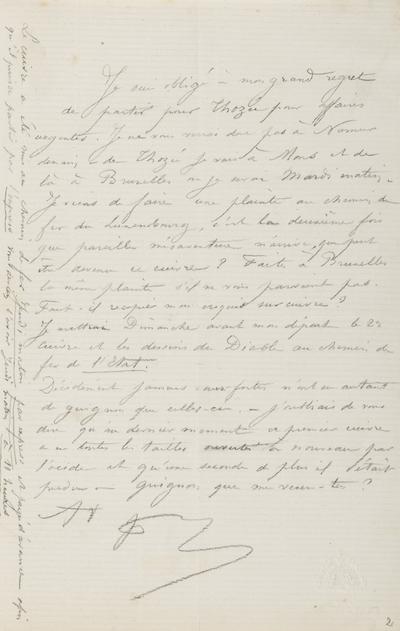 Je suis obligé à mon grand regret
de partir pour Thozée pour affaires
urgentes. Je ne vous verrai donc pas à Namur
demain – de Thozée je vais à Mons et de
là à Bruxelles où je serai Mardi matin –
Je viens de faire une plainte au chemin de
fer du Luxembourg, c'est la deuxième fois
que pareille mésaventure m'arrive, que peut
être devenu ce cuivre ? Faites à Bruxelles
la même plainte s'il ne vous parvient pas.
Faut-il recopier mon croquis sur cuivre ?
Je mettrai Dimanche avant mon départ le 2e
cuivre et les dessins du Diable au chemin de
fer de l'Etat.
Décidément jamais eaux fortes n'ont eu autant
de guignon que celles-ci. – J'oubliais de vous
dire qu'au dernier moment ce premier cuivre
a eu toutes les tailles à nouveau par
l'acide et qu'une seconde de plus il était
perdu – guignon que me veux-tu ?
Le cuivre a été mis au chemin de fer Jeudi matin par exprès et payé d'avance afin
qu'il puisse partir par l'express
2